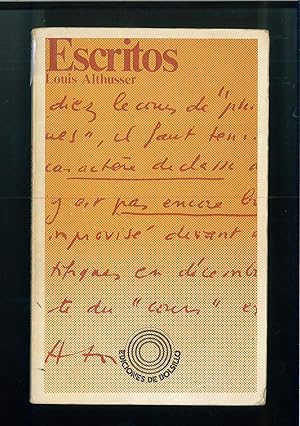 Escritos
Louis Althusser
diez le cours de "ph
ues", il faut ten
caractère de classe
y ait pas encore
improvisé devant
tifiques en décemb
te du "cours"
EDICIONES DE BOLSILLO